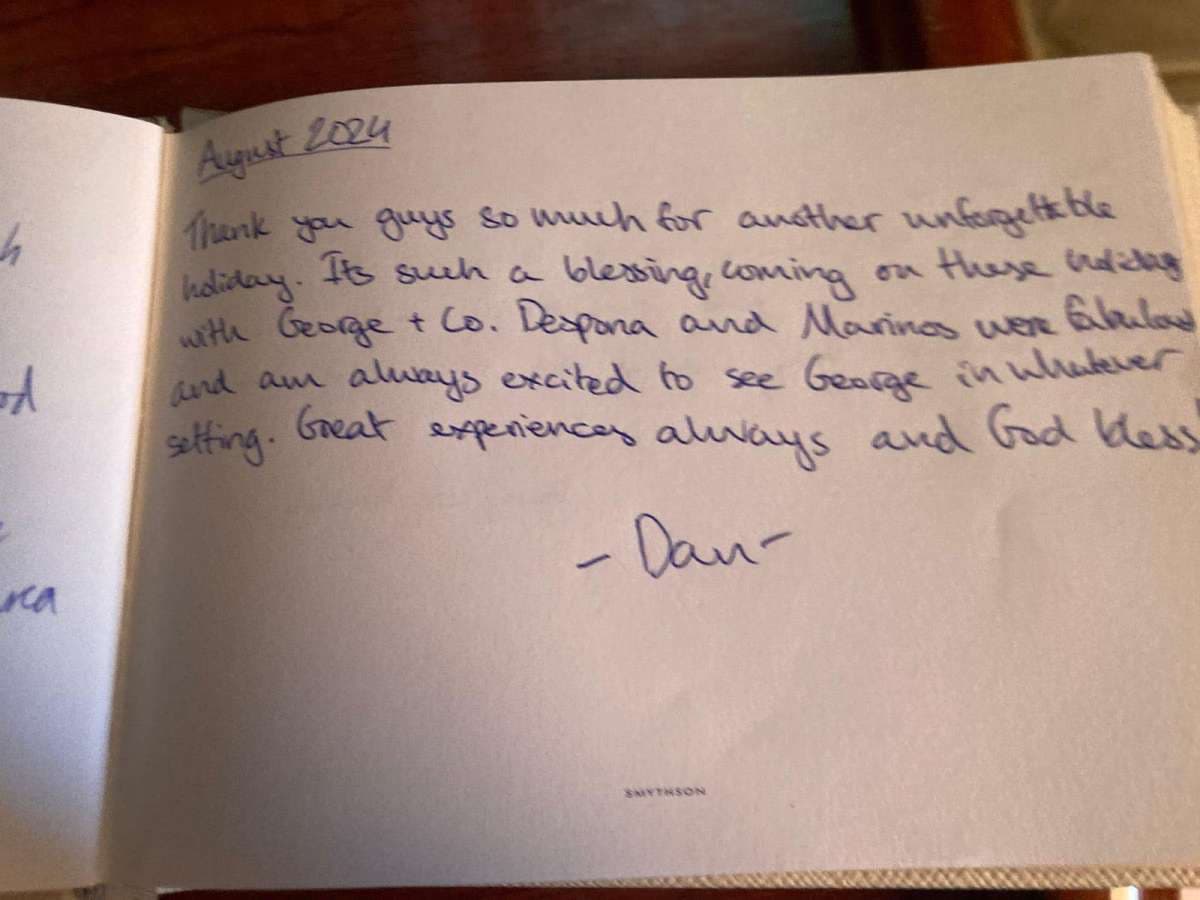 August 2024
Thank you guys so much for another unforgettable
holiday. Its such a blessing, coming on these holidays
with George + Co. Despona and Marinos were fabulous
and am always excited to see George in whatever
setting. Great experiences always and God bless
- Dan -
SMYTHSON
h
od
rca